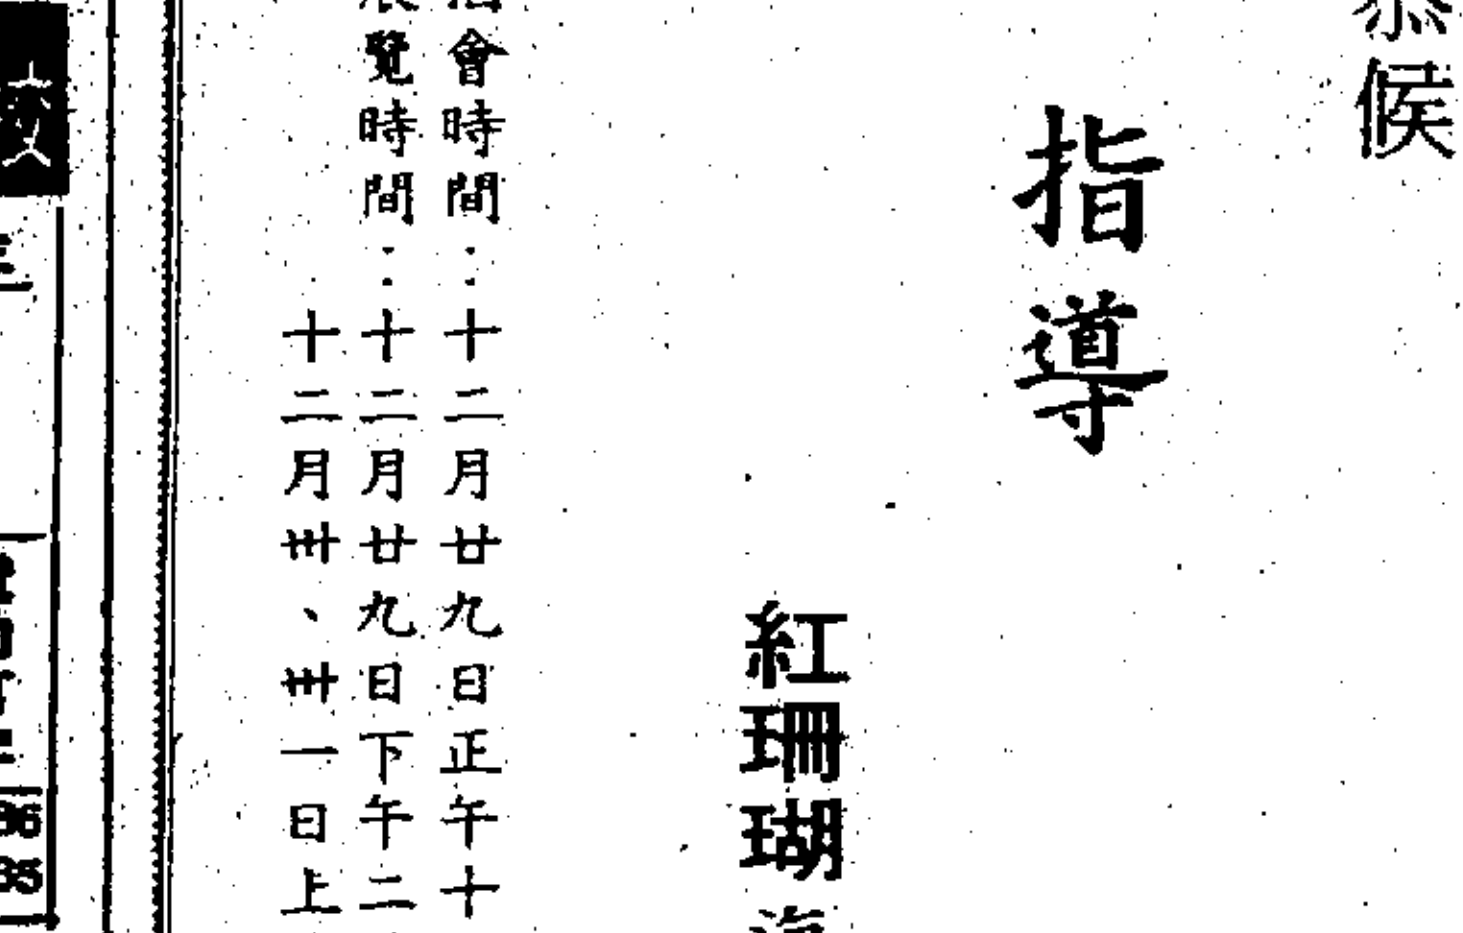 恭候
指導
紅珊瑚
會時間：十二月廿九日正午十
展覽時間：十二月廿九日下午二
十二月卅、卅一日上